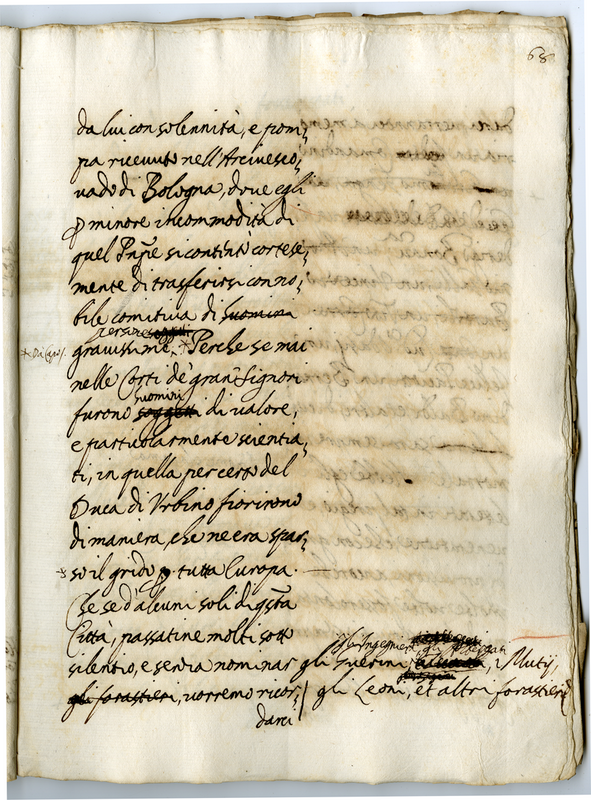 68
da lui con solennità, e pom,
pa ricevuto nell'Arcivesco,
vado di Bologna, dove egli
p minore incommodità di
quel Pnṡe si contintò cortese,
mente di trasferirsi con no,
bile comitiva di huomini
persone soggetti
gravissime. * Perche se mai
* Da Capo/.
nelle Corti de' gran' Signori
huomini
furono soggetti di valore,
e particolarmente scientia,
ti, in quella per certo del
Duca di Urbino fiorirono
di maniera, che ne era spar,
so il grido p tutta Europa.
Che se d'alcuni soli di qsta
Città, passatine molti sotto
gl'Ingegnieri gli
silentio, e senza nominar gli Guerini, i Mutij,
gli forastieri, vorremo ricor, / gli Leoni, et altri forastieri
darci